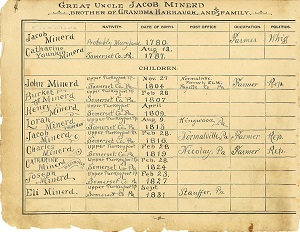 GREAT UNCLE JACOB MINERD
BROTHER OF GRANDMA HARBAUGH, AND FAMILY.
NATIVITY DATE OF BIRTH POST OFFICE OCCUPATION POLITICS
Jacob Minerd Probably Maryland 1780. Farmer Whig
Catharine Younkin Minerd Somerset Co. Pa. Aug 12, 1787.
CHILDREN
John Minerd Upper Turkeyfoot Tp Somerset Co. Pa. Nov. 27 1804 Normalville Fayette Co. Pa Farmer Rep.
Minerd Upper Turkeyfoot Somerset Co. Pa. Feb 26 1807
Henry Minerd Upper Turkeyfoot Somerset Co. Pa. April 1809
Minerd Upper Turkeyfoot Somerset Co. Pa. Aug. 9 1813 Kingwood, Pa
Jacob Minerd Upper Turkeyfoot Somerset Co. Pa. Feb. 28 1816 Normalville Pa Farmer Rep.
Charles Minerd Upper Turkeyfoot Somerset Co. Pa. Feb 26 1819 Nicolay, Pa Farmer Rep.
Catharine Minerd Upper Turkeyfoot Somerset Co. Pa. Feb. 28 1824
Joseph Minerd Upper Turkeyfoot Somerset Co. Pa. Feb. 23 1827
Eli Minerd. Upper Turkeyfoot Somerset Co. Pa. Sept 1831 Stauffer, Pa.